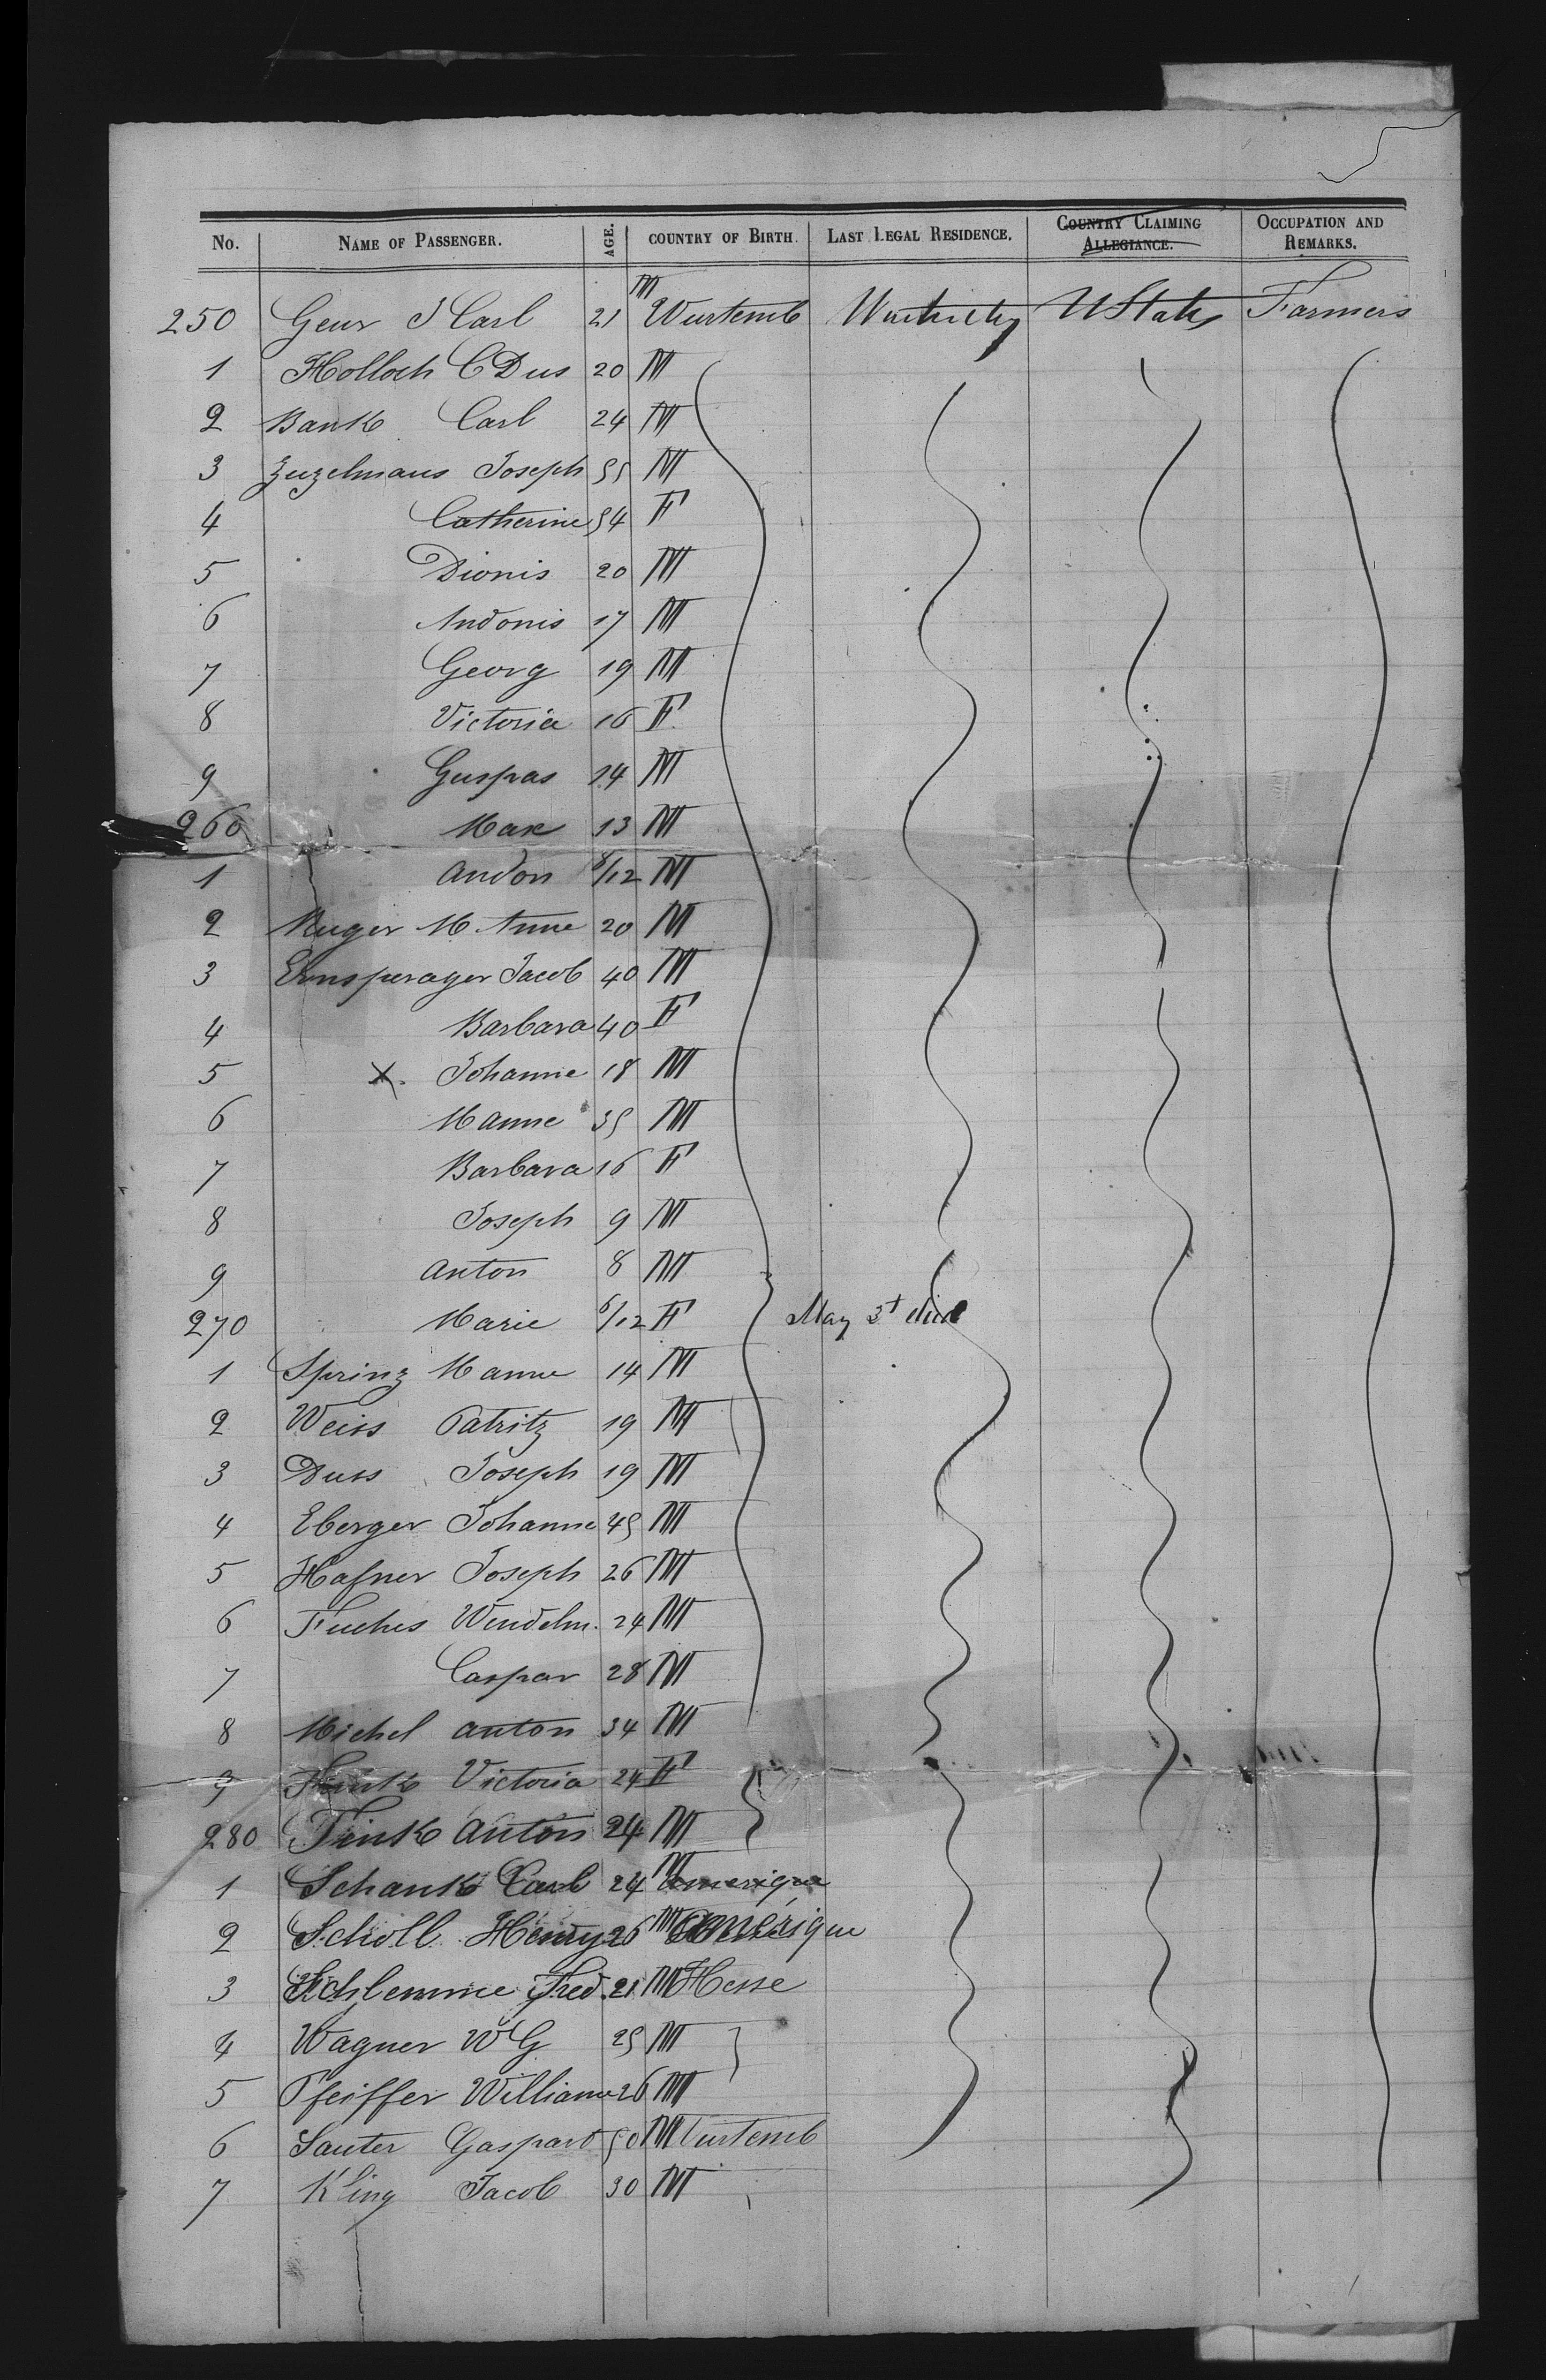 No. NAME OF PASSENGER. AGE. COUNTRY OF BIRTH. LAST LEGAL RESIDENCE. COUNTRY CLAIMING ALLEGIANCE. OCCUPATION AND REMARKS.
250 Geur J Carl 21 M Wurtemb UStates Farmers
1 Holloch C Dus 20 M
2 Bank Carl 24 M
3 Zuzelmans Joseph 55 M
4 Catherine 54 F
5 Dionis 20 M
6 Andonis 17 M
7 Georg 19 M
8 Victoria 16 F
9 Guspas 14 M
260 Max 13 M
1 Andon 8/12 M
2 Ruger M. Anne 20 M
3 Ernsperager Jacob 40 M
4 Barbara 40 F
5 X. Johanne 18 M
6 Manne 35 M
7 Barbara 16 F
8 Joseph 9 M
9 Anton 8 M
270 Marie 6/12 F May 3t died
1 Spring Manne 14 M
2 Weiss Patritz 19 M
3 Duss Joseph 19 M
4 Eberger Johanne 45 M
5 Hafner Joseph 26 M
6 Fuches Wendelm. 24 M
7 Caspar 28 M
8 Michel Anton 34 M
9 Fink Victoria 24 F
280 Fink Anton 24 M
1 Schank Carl 24 M Amerique
2 Scholl Henry 26 M Amérique
3 Schlemme Fred. 21 M Hesse
4 Wagner W G 25 M
5 Pfeiffer Williame 26 M
6 Sauter Gaspard 50 M Wurtemb
7 Kling Jacob 30 M